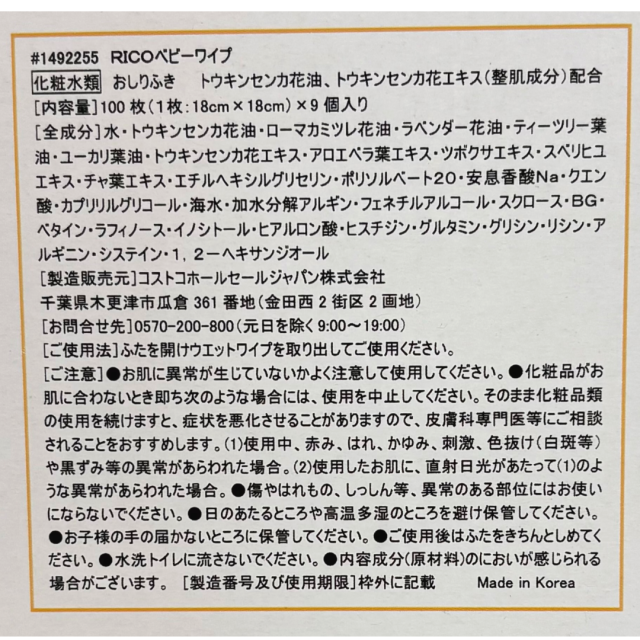 #1492255 RICOベビーワイプ
化粧水類 おしりふき トウキンセンカ花油、トウキンセンカ花エキス(整肌成分)配合
[内容量]100枚(1枚:18cm×18cm)×9個入り
[全成分]水・トウキンセンカ花油・ローマカミツレ花油・ラベンダー花油・ティーツリー葉
油・ユーカリ葉油・トウキンセンカ花エキス・アロエベラ葉エキス・ツボクサエキス・スベリヒユ
エキス・チャ葉エキス・エチルヘキシルグリセリン・ポリソルベート20・安息香酸Na・クエン
酸・カプリリルグリコール・海水・加水分解アルギン・フェネチルアルコール・スクロース・BG・
ベタイン・ラフィノース・イノシトール・ヒアルロン酸・ヒスチジン・グルタミン・グリシン・リシン・ア
ルギニン・システイン・1,2-ヘキサンジオール
[製造販売元]コストコホールセールジャパン株式会社
千葉県木更津市瓜倉361番地(金田西2街区2画地)
[お問合せ先]0570-200-800(元日を除く9:00〜19:00)
[ご使用法]ふたを開けウエットワイプを取り出してご使用ください。
[ご注意]●お肌に異常が生じていないかよく注意して使用してください。●化粧品がお
肌に合わないとき即ち次のような場合には、使用を中止してください。そのまま化粧品類
の使用を続けますと、症状を悪化させることがありますので、皮膚科専門医等にご相談
されることをおすすめします。(1)使用中、赤み、はれ、かゆみ、刺激、色抜け(白斑等)
や黒ずみ等の異常があらわれた場合。(2)使用したお肌に、直射日光があたって(1)のよ
うな異常があらわれた場合。●傷やはれもの、しっしん等、異常のある部位にはお使い
にならないでください。●日のあたるところや高温多湿のところを避け保管してください。
●お子様の手の届かないところに保管してください。●ご使用後はふたをきちんとしめてく
ださい。●水洗トイレに流さないでください。●内容成分(原材料)のにおいが感じられる
場合がございます。[製造番号及び使用期限]枠外に記載 Made in Korea